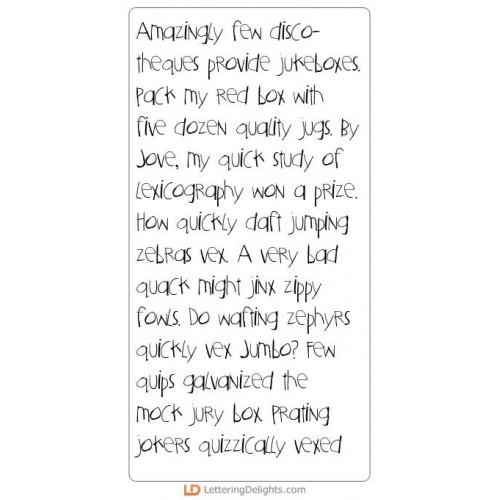 Amazingly few disco-
theques provide jukeboxes.
Pack my red box with
five dozen quality jugs. By
Jove, my quick study of
lexicography won a prize.
How quickly daft jumping
zebras vex. A very bad
quack might jinx zippy
fowls. Do wafting zephyrs
quickly vex Jumbo? Few
quips galvanized the
mock jury box Prating
jokers quizzically vexed
LD LetteringDelights.com